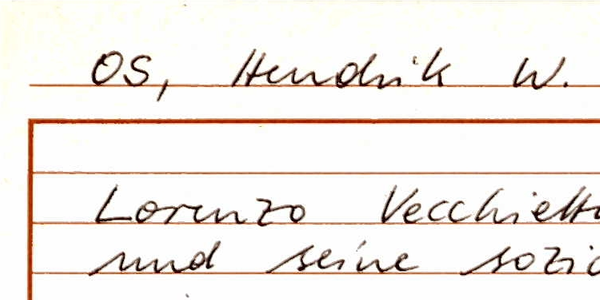 OS, Hendrik W.
Lorenzo Vecchietta
und seine sozia